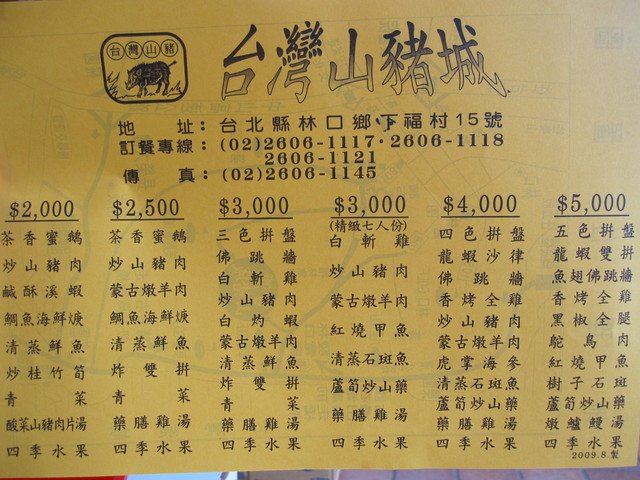 台灣山豬
台灣山豬城
地 址：台北縣林口鄉下福村15號
訂餐專線：(02)2606-1117・2606-1118
2606-1121
傳 真：(02)2606-1145
$2,000
茶香蜜鵝
炒山豬肉
鹹酥溪蝦
鯛魚海鮮焿
清蒸鮮魚
炒桂竹筍
青菜
酸菜山豬肉片湯
四季水果
$2,500
茶香蜜鵝
炒山豬肉
蒙古燉羊肉
鯛魚海鮮焿
清蒸鮮魚
炸雙拼
青菜
藥膳雞湯
四季水果
$3,000
三色拼盤
佛跳牆
白斬雞
炒山豬肉
白灼蝦
蒙古燉羊肉
清蒸鮮魚
炸雙拼
青菜
藥膳雞湯
四季水果
$3,000
(精緻七人份)
白斬雞
炒山豬肉
蒙古燉羊肉
紅燒甲魚
清蒸石斑魚
蘆筍炒山藥
藥膳雞湯
四季水果
$4,000
四色拼盤
龍蝦沙律
佛跳牆
香烤全雞
炒山豬肉
蒙古燉羊肉
虎掌海參
清蒸石斑魚
蘆筍炒山藥
藥膳雞湯
四季水果
$5,000
五色拼盤
龍蝦雙拼
魚翅佛跳牆
香烤全雞
黑椒全腿
鴕鳥肉
紅燒甲魚
樹子石斑
蘆筍炒山藥
燉鱸鰻湯
四季水果
2009.8.製